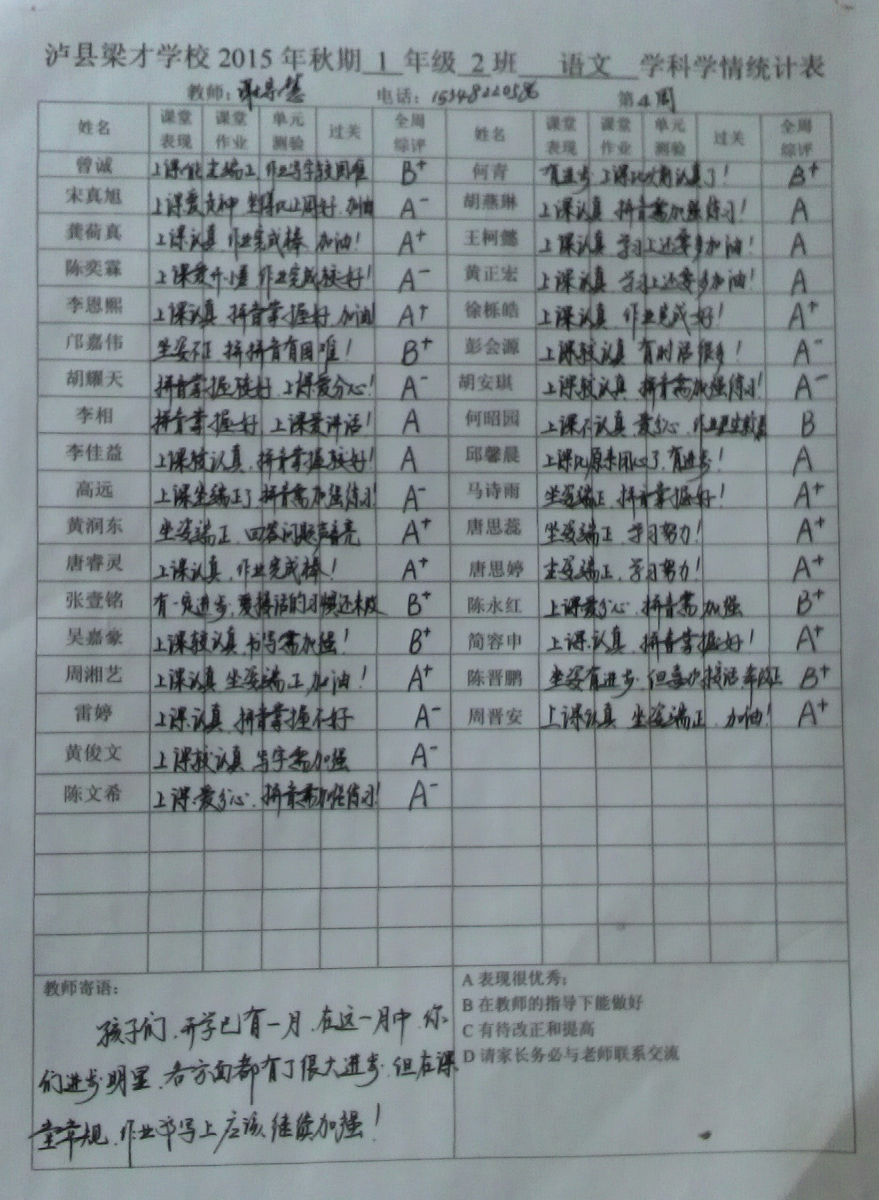 泸县梁才学校 2015 年秋期 1 年级 2 班 语文 学科学情统计表
教师: 慧 电话: 第4周
姓名 课堂表现 课堂作业 单元测验 过关 全周综评 姓名 课堂表现 课堂作业 单元测验 过关 全周综评
曾诚 上课能坐端正,作业写字较困难 B+ 何青 有进步,上课比以前认真了! B+
宋真旭 上课爱走神,坐得比上周好,加油 A- 胡燕琳 上课认真,拼音需加强练习! A
龚荷真 上课认真,作业完成棒,加油! A+ 王柯懿 上课认真,学习上还要多加油! A
陈奕霖 上课爱开小差,作业完成较好! A- 黄正宏 上课认真,学习上还要多加油! A
李恩熙 上课认真,拼音掌握好,加油! A+ 徐栎皓 上课认真,作业完成好! A+
邝嘉伟 坐姿不正,拼拼音有困难! B+ 彭会源 上课较认真,有时话很多! A-
胡耀天 拼音掌握较好,上课爱分心! A- 胡安琪 上课较认真,拼音需加强练习! A-
李相 拼音掌握好,上课爱讲话! A 何昭园 上课不认真,爱分心,作业 B
李佳益 上课较认真,拼音掌握较好! A 邱馨晨 上课比原来用心了,有进步! A
高远 上课坐端正了,拼音需加强练习! A- 马诗雨 坐姿端正,拼音掌握好! A+
黄润东 坐姿端正,回答问题声音亮 A+ 唐思蕊 坐姿端正,学习努力! A+
唐睿灵 上课认真,作业完成棒! A+ 唐思婷 坐姿端正,学习努力! A+
张壹铭 有一定进步,要接话的习惯还未改 B+ 陈永红 上课爱分心,拼音需加强 B+
吴嘉豪 上课较认真,书写需加强! B+ 简容申 上课认真,拼音掌握好! A+
周湘艺 上课认真,坐姿端正,加油! A+ 陈晋鹏 坐姿有进步,但喜欢接话,未改正 B+
雷婷 上课认真,拼音掌握不好 A- 周晋安 上课认真,坐姿端正,加油! A+
黄俊文 上课较认真,写字需加强 A-
陈文希 上课爱分心,拼音需加强练习! A-
教师寄语:
孩子们,开学已有一月,在这一月中,你
们进步明显,各方面都有了很大进步,但在课
堂常规,作业书写上应该继续加强!
A 表现很优秀;
B 在教师的指导下能做好
C 有待改正和提高
D 请家长务必与老师联系交流